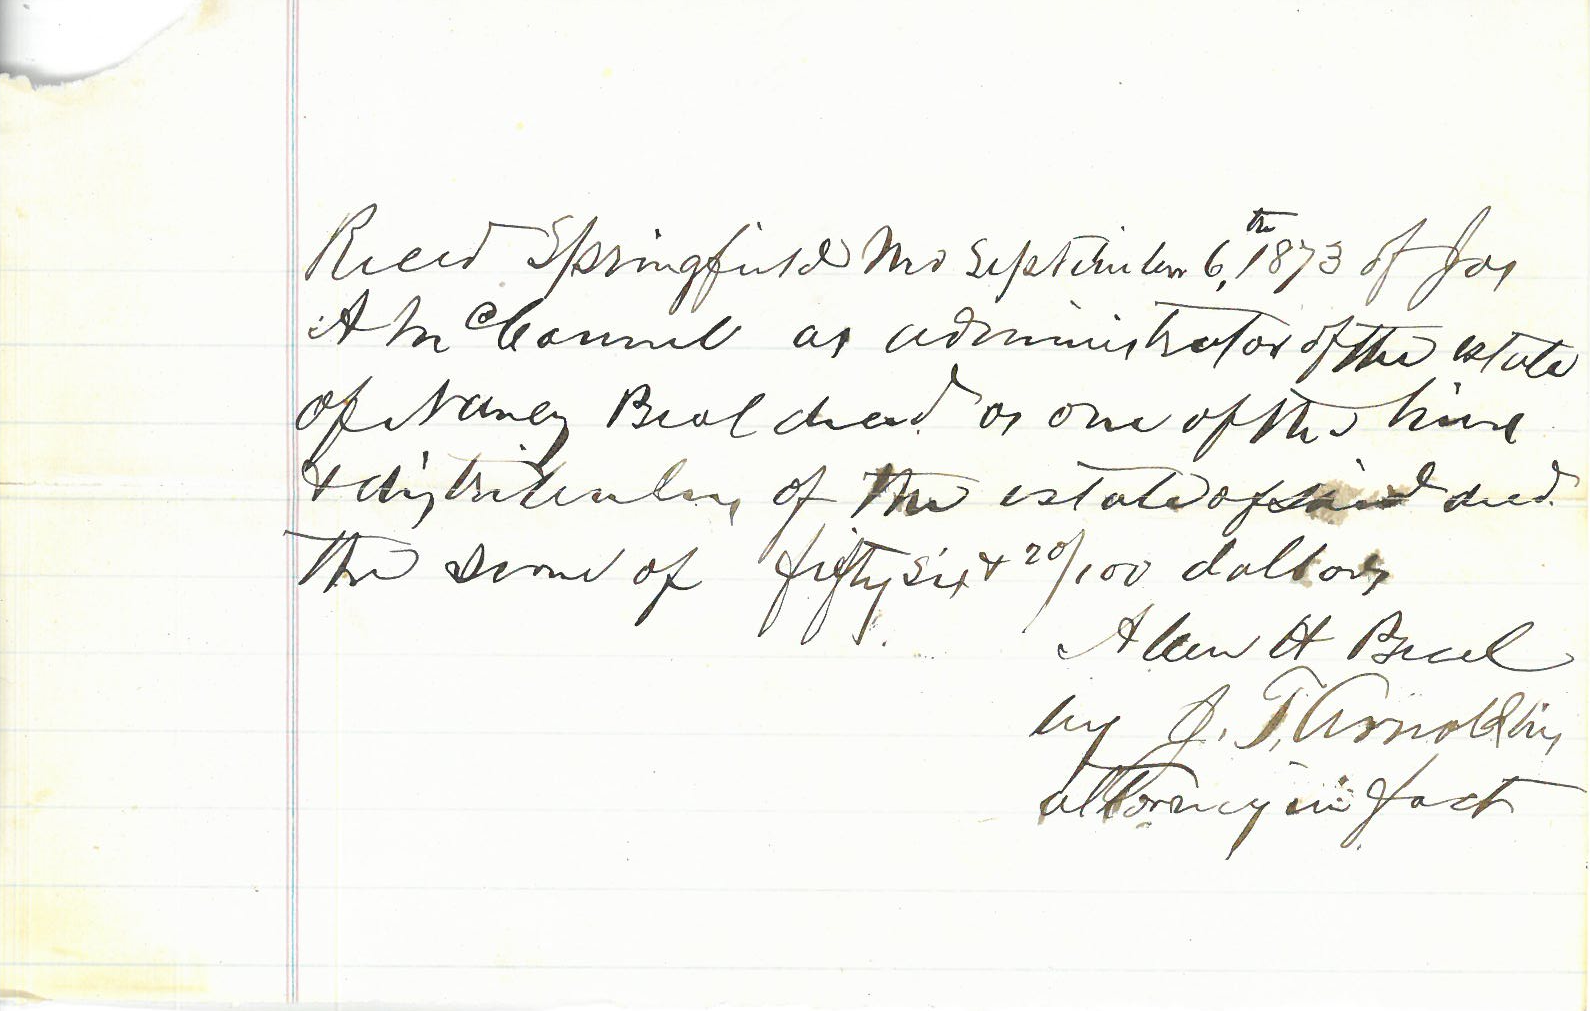 Recd Springfield Mo September 6,th 1873 of Jos
A McConnel as administrator of the estate
of Nancy Beal decd. as one of the heirs
& distributees of the estate of said decd.
the sum of fifty six & 20/100 dollars
H Beal
by J. T. Arnold his
attorney in fact